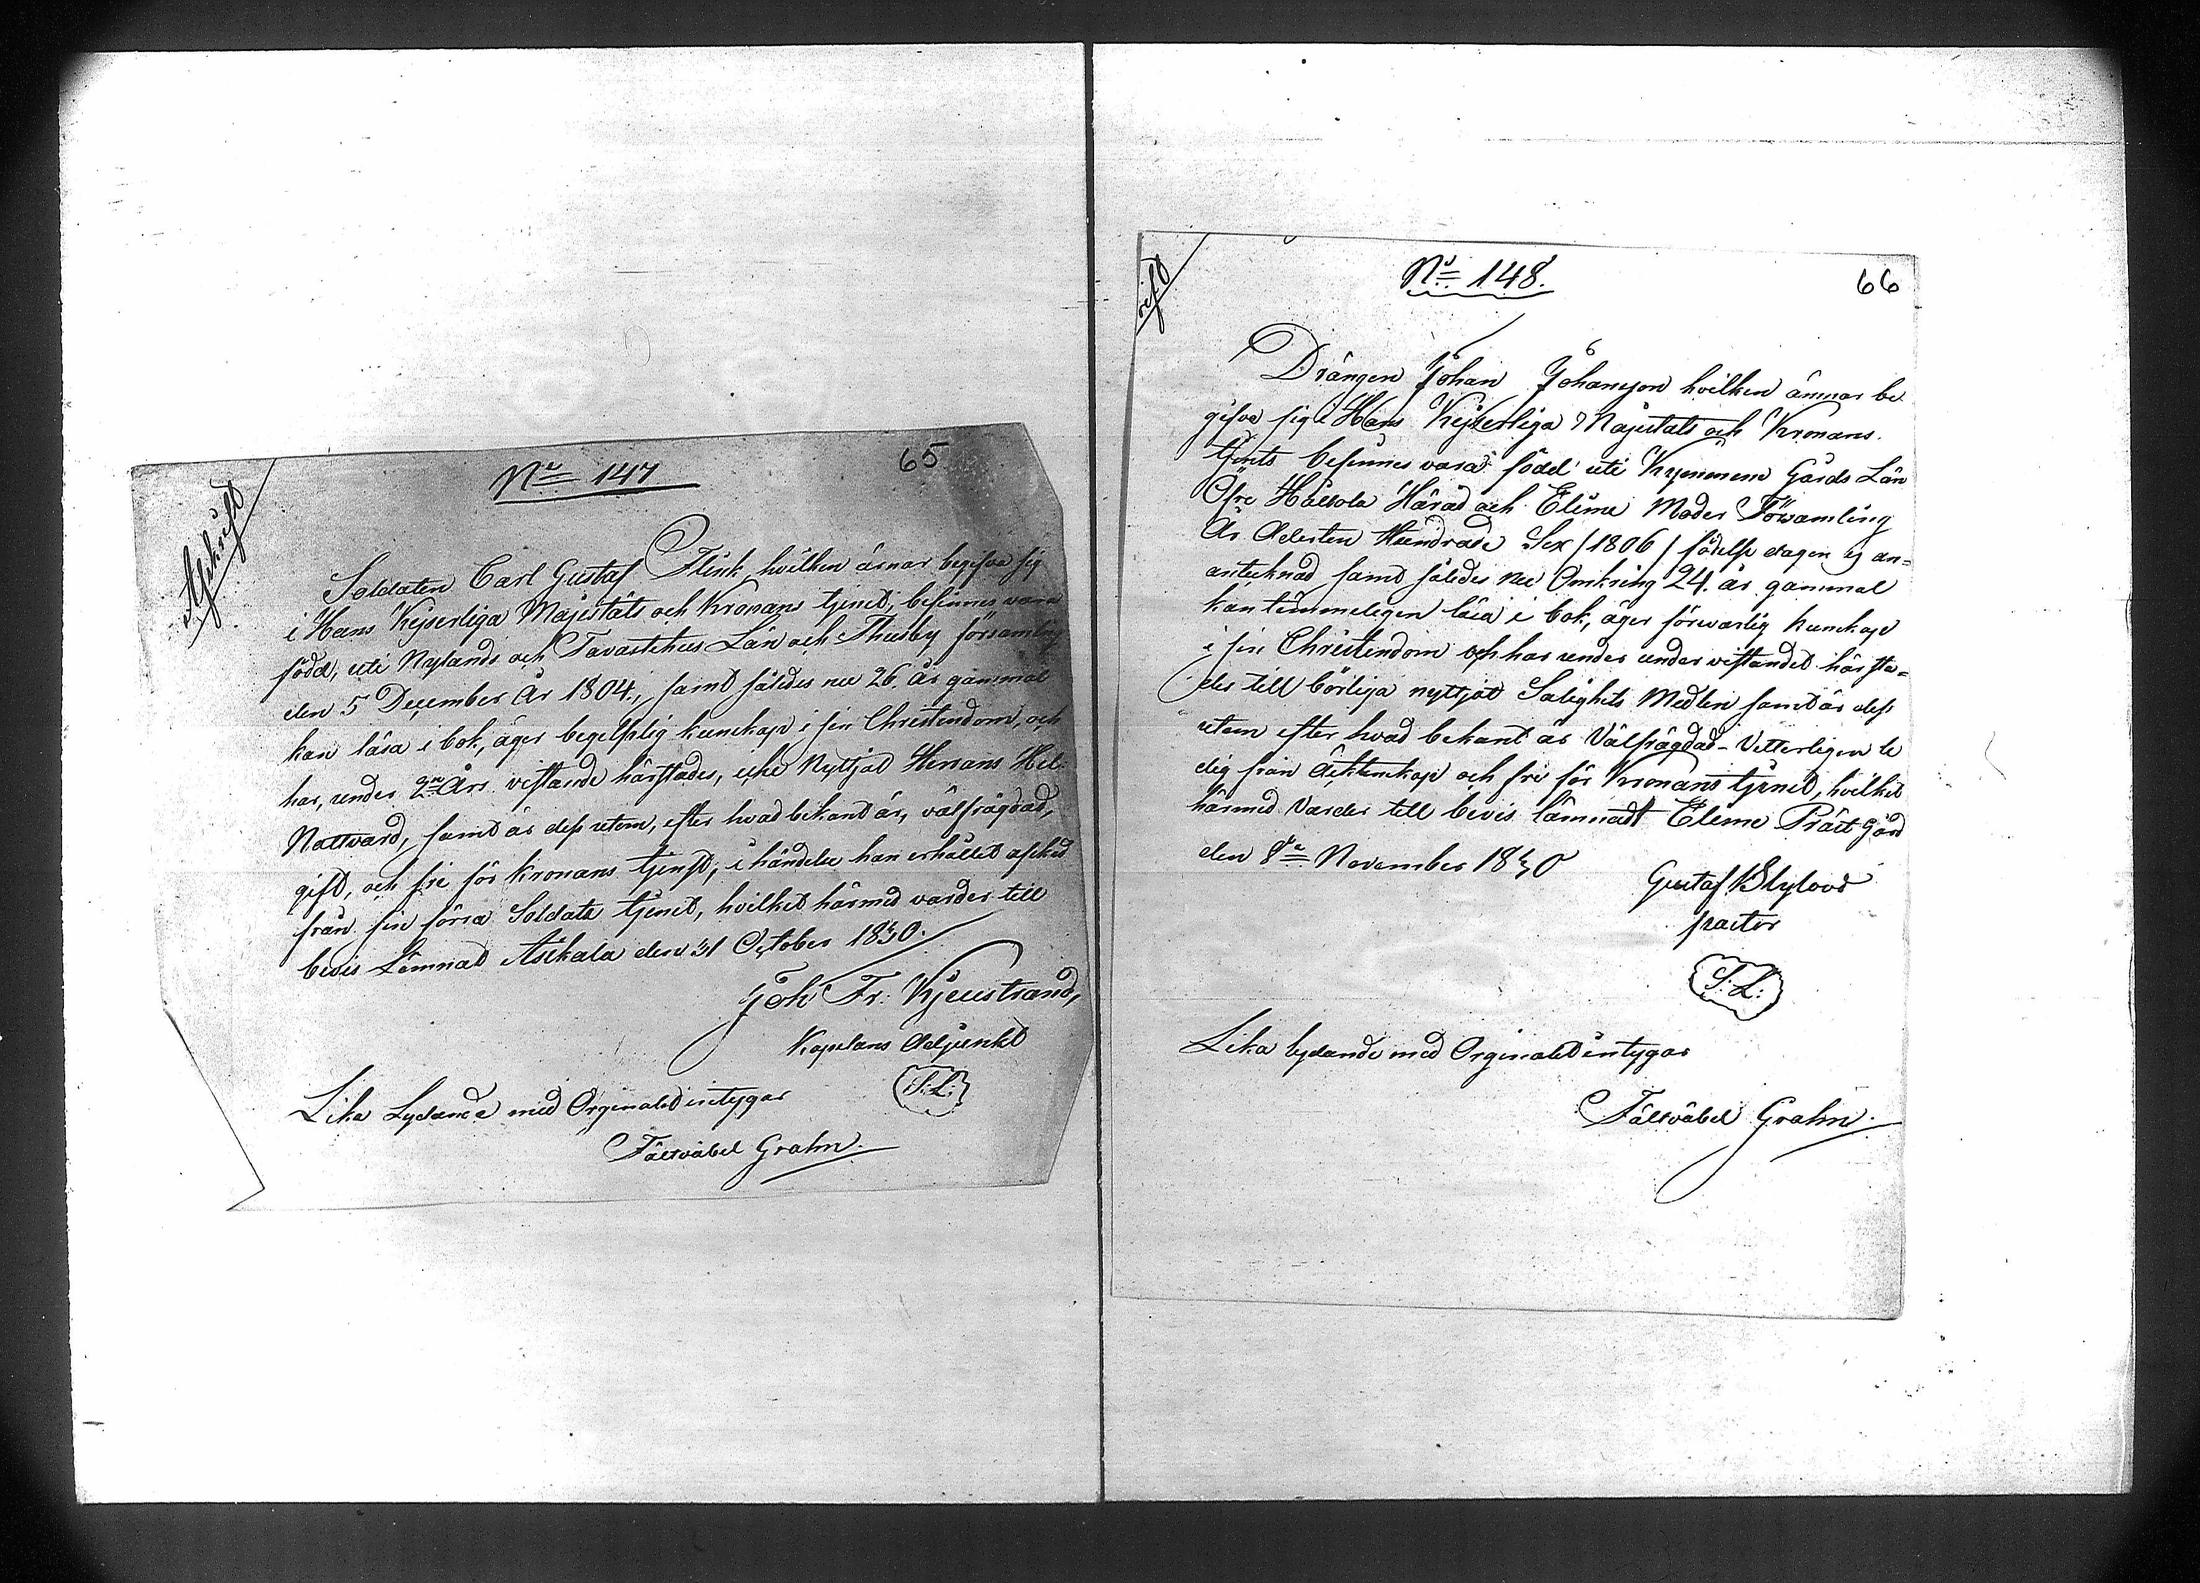 65
Nr 147
Afskrift
Soldaten Carl Gustaf Flink hvilken ärnar begifva sig
i Hans Kejserliga Majestäts och Kronans tjenst, befinnes vara
född, uti Nylands och Tavastehus Län och Thusby församling
den 5 December År 1804, samt således nu 26. År gammal
kan läsa i bok, äger begriplig kunskap i sin Christendom, och
har, under 2ne Års vistande härstädes, icke Nyttjat Herrans Hel:
Nattvard, samt är dess utom, efter hvad bekant är, välfrägdad,
gift, och fri för kronans tjenst, i händelse han erhållit afsked
från sin förra Soldats tjenst, hvilket härmed varder till
bevis Lämnad Asikala den 31 October 1830.
Joh Fr: Kjeustrand,
Kapelans Adjunkt
S:L:
Lika Lydande med Orginalet intygar
Fältväbel Grahn.
66
No 148.
rift
Drängen Johan Johansson hvilken ämnar be
gifva sig i Hans Kejserliga Majestäts och Kronans
tjenst befinnes vara född uti Kymmene Gårds Län
Öfre Hållola Härad och Elime Moder Församling
År Aderton Hundrade Sex /1806/ födelse dagen ej an=
antecknad samt således nu Omkring 24. år gammal
kan timmeligen läsa i bok, äger förswarlig kunskap
i sin Christendom och har under under vistandet härstä=
des till börliga nyttjat Salighets Medlen samt är dess
utom efter hvad bekant är Välfrägdad – Vetterligen le
dig från Äcktenskap och fri för Kronans tjenst, hvilket
härmed varder till bevis lämnadt Elime Präst Gård
den 8de November 1830
Gustaf Blylood
pastor
S:L:
Lika lydande med Orginalet intygar
Fältväbel Grahn.